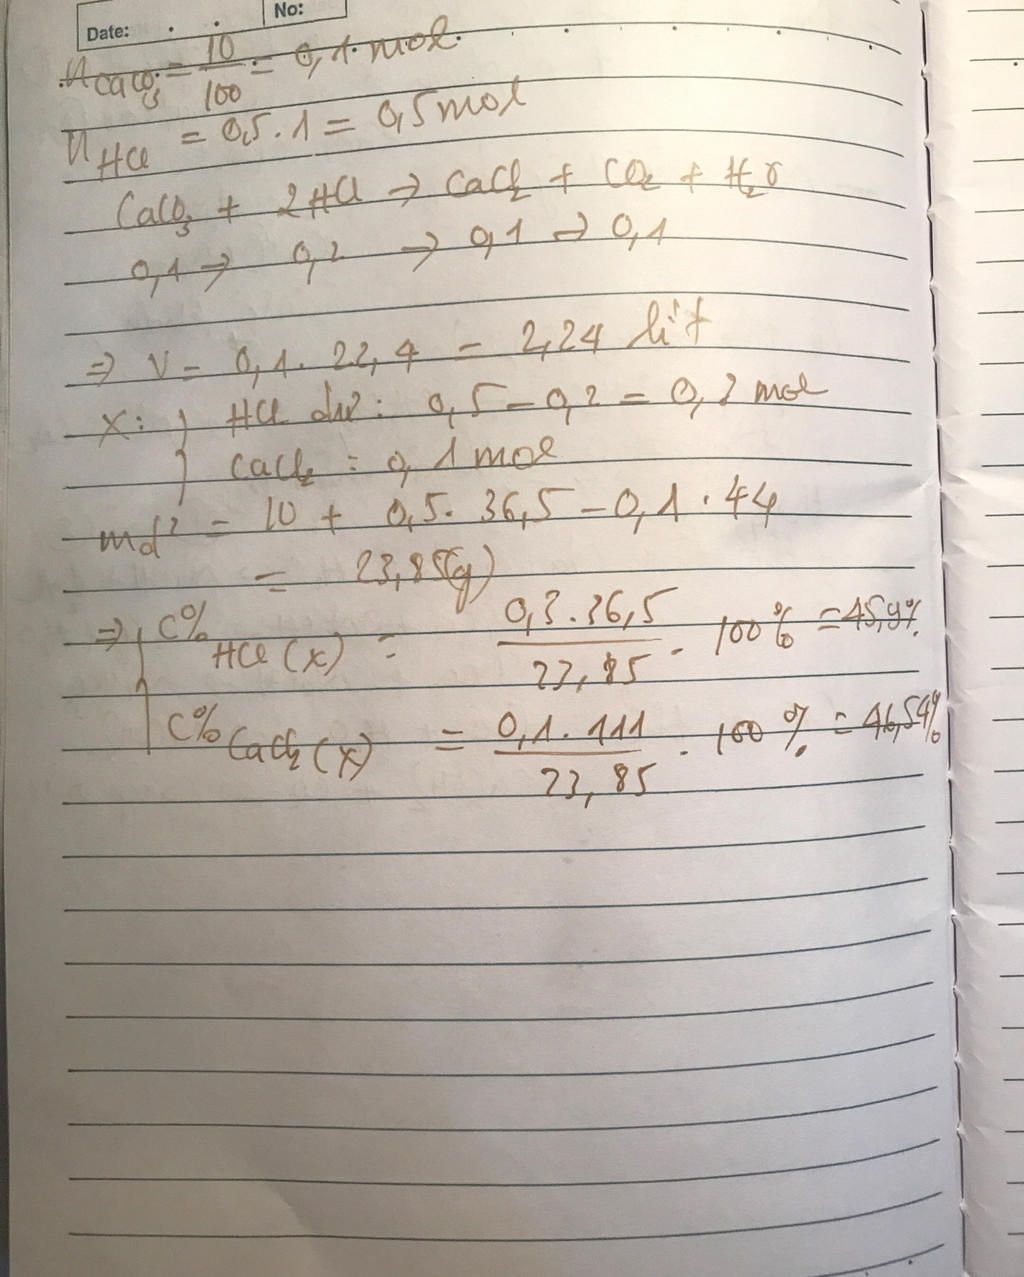 Date: No:
n CaCO₃ = 10/100 = 0,1 mol
n HCl = 0,5 . 1 = 0,5 mol
CaCO₃ + 2HCl → CaCl₂ + CO₂ + H₂O
0,1 → 0,2 → 0,1 → 0,1
⇒ V = 0,1 . 22,4 = 2,24 lít
X: } HCl dư: 0,5 - 0,2 = 0,3 mol
CaCl₂ : 0,1 mol
md² = 10 + 0,5 . 36,5 - 0,1 . 44
= 23,85(g)
⇒ { C% HCl (X) = 0,3 . 36,5 / 23,85 . 100% = 45,9%
C% CaCl₂ (X) = 0,1 . 111 / 23,85 . 100% = 46,54%